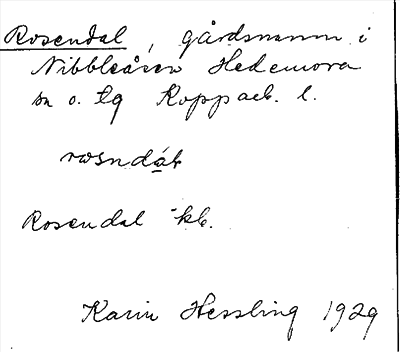 Rosendal, gårdsnamn i
Nibbleåsen Hedemora
sn o. tg Kopparb. l.
Rosendal kb.
Karin Hessling 1929